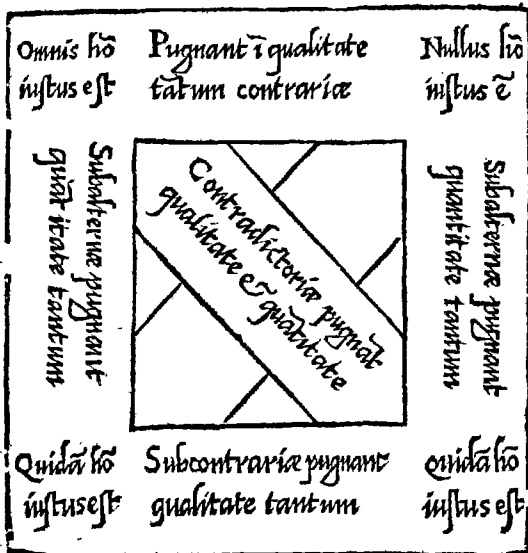 Omnis hõ
iustus est
Pugnant ĩ qualitate
tãtum contrariæ
Nullus hõ
iustus ẽ
Subalternæ pugnant
quãtitate tantum
Contradictoriæ pugnãt
qualitate & quãtitate
Subalternæ pugnant
quantitate tantum
Quidã hõ
iustus est
Subcontrariæ pugnant
qualitate tantum
quidã hõ
iustus est